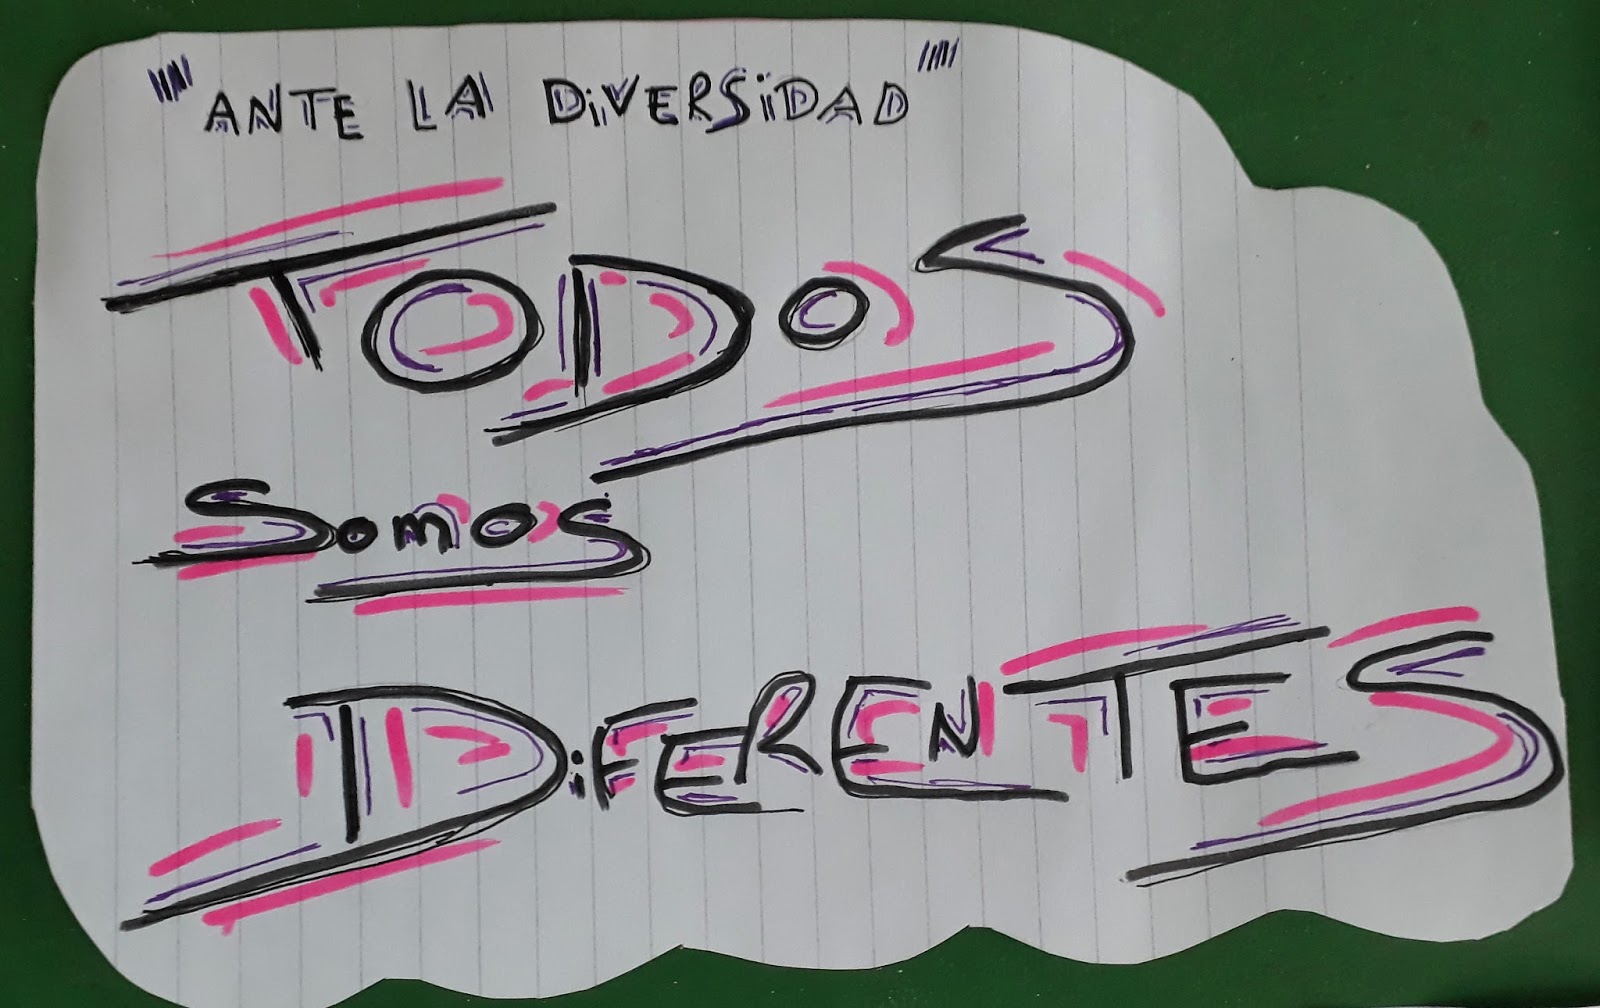 "ANTE LA DiVERSiDAD"
TODOS
SOMOS
DiFERENTES